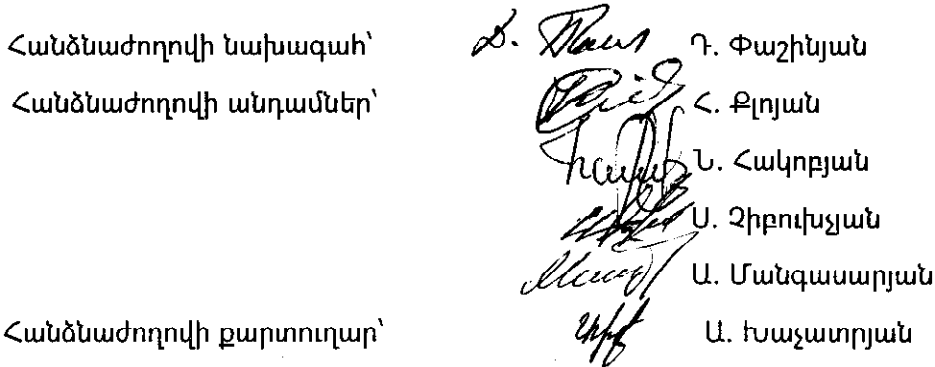 Հանձնաժողովի նախագահ՝ Դ. Փաշինյան
Հանձնաժողովի անդամներ՝ Հ. Քլոյան
Ն. Հակոբյան
Ս. Չիբուխչյան
Ա. Մանգասարյան
Հանձնաժողովի քարտուղար՝ Ա. Խաչատրյան